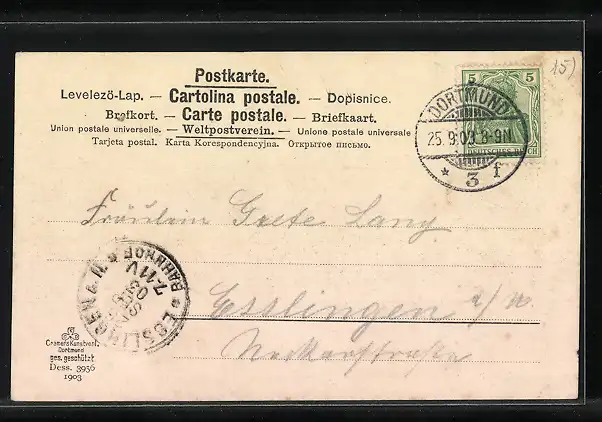 Postkarte.
Levelező-Lap. — Cartolina postale. — Dopisnice.
Brefkort. — Carte postale. — Briefkaart.
Union postale universelle. — Weltpostverein. — Unione postale universale
Tarjeta postal. Karta Korespondencyjna. Открытое письмо.
15)
5 5
DEUTSCHES REICH
DORTMUND
25.9.03.8-9N
* 3 f
Fräulein Grete Lang
Esslingen a/N.
Neckarstraße
ESSLINGEN A. N. * BAHNHOF *
SEP
03
7-11V
Cramers Kunstverl.
Dortmund
ges. geschützt
Dess. 3956
1903